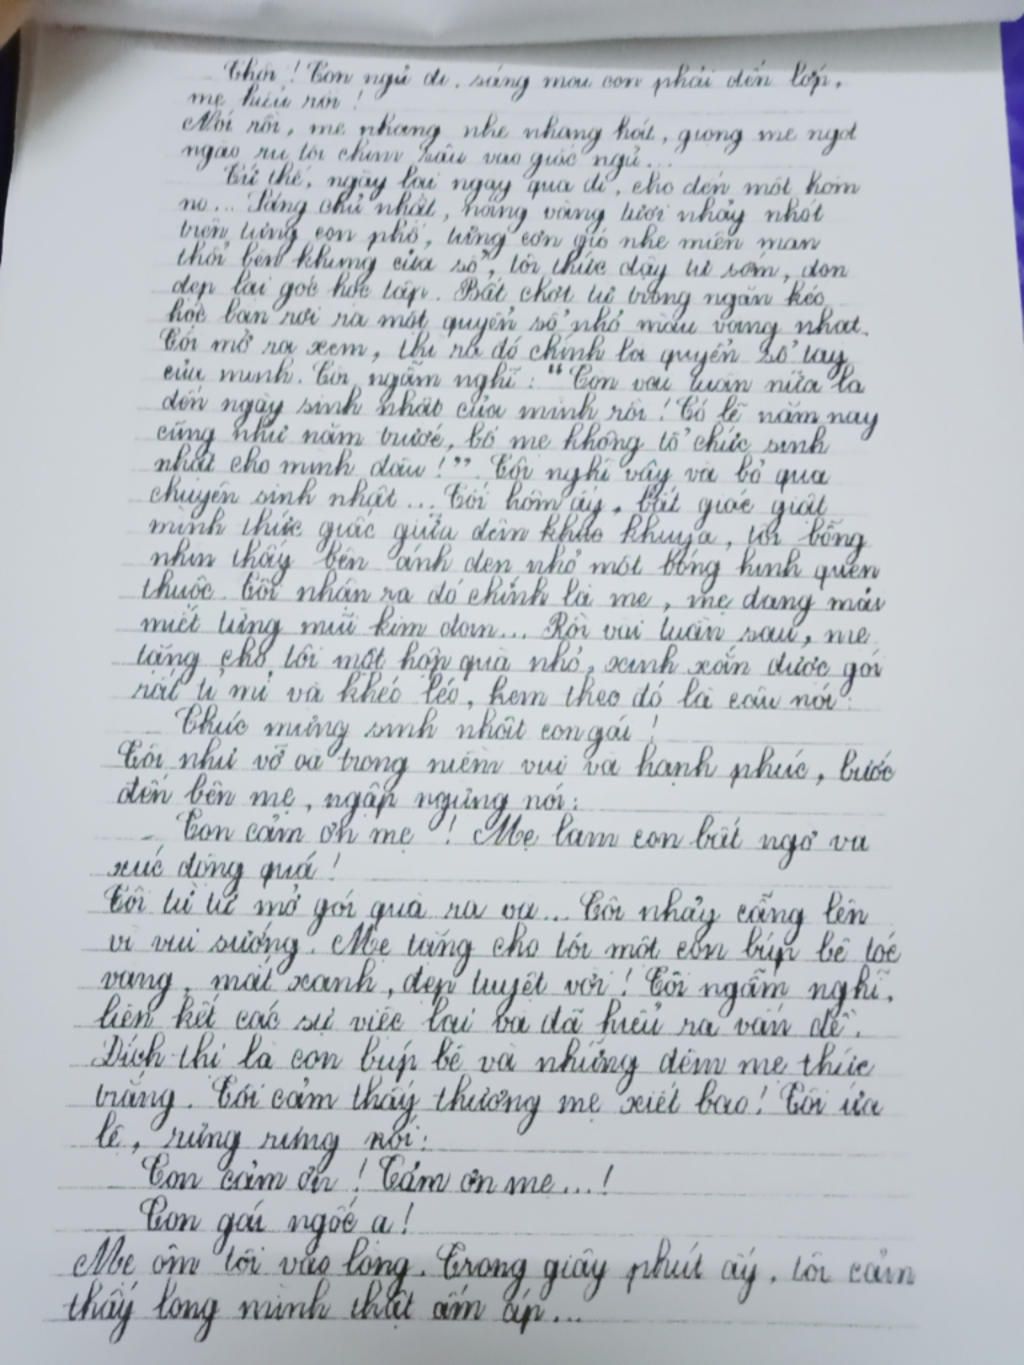 _ Thôi ! Con ngủ đi, sáng mai con phải đến lớp,
mẹ hiểu rồi !
Nói rồi, mẹ nhẹ nhàng hát, giọng mẹ ngọt
ngào ru tôi chìm sâu vào giấc ngủ...
Cứ thế, ngày lại ngày qua đi, cho đến một hôm
nọ... Sáng chủ nhật, nắng vàng tươi nhảy nhót
trên từng con phố, từng cơn gió nhẹ miên man
thổi bên khung cửa sổ, tôi thức dậy từ sớm, dọn
dẹp lại góc học tập. Bất chợt từ trong ngăn kéo
hộc bàn rơi ra một quyển sổ nhỏ màu vàng nhạt.
Tôi mở ra xem, thì ra đó chính là quyển sổ tay
của mình. Tôi ngẫm nghĩ : "Còn vài tuần nữa là
đến ngày sinh nhật của mình rồi ! Có lẽ năm nay
cũng như năm trước, bố mẹ không tổ chức sinh
nhật cho mình đâu !". Tôi nghĩ vậy và bỏ qua
chuyện sinh nhật... Tối hôm ấy, bất giác giật
mình thức giấc giữa đêm khuya, tôi bỗng
nhìn thấy bên ánh đèn nhỏ một bóng hình quen
thuộc. Tôi nhận ra đó chính là mẹ, mẹ đang mải
miết từng mũi kim đan... Rồi vài tuần sau, mẹ
tặng cho tôi một hộp quà nhỏ, xinh xắn được gói
rất tỉ mỉ và khéo léo, kèm theo đó là câu nói :
_ Chúc mừng sinh nhật con gái !
Tôi như vỡ oà trong niềm vui và hạnh phúc, bước
đến bên mẹ, ngập ngừng nói :
_ Con cảm ơn mẹ ! Mẹ làm con bất ngờ và
xúc động quá !
Tôi từ từ mở gói quà ra và... Tôi nhảy cẫng lên
vì vui sướng. Mẹ tặng cho tôi một con búp bê tóc
vàng, mắt xanh, đẹp tuyệt vời ! Tôi ngẫm nghĩ,
liên kết các sự việc lại và đã hiểu ra vấn đề.
Đích thị là con búp bê và những đêm mẹ thức
trắng. Tôi cảm thấy thương mẹ xiết bao ! Tôi ứa
lệ, rưng rưng nói :
_ Con cảm ơn ! Cảm ơn mẹ... !
_ Con gái ngốc ạ !
Mẹ ôm tôi vào lòng. Trong giây phút ấy, tôi cảm
thấy lòng mình thật ấm áp...